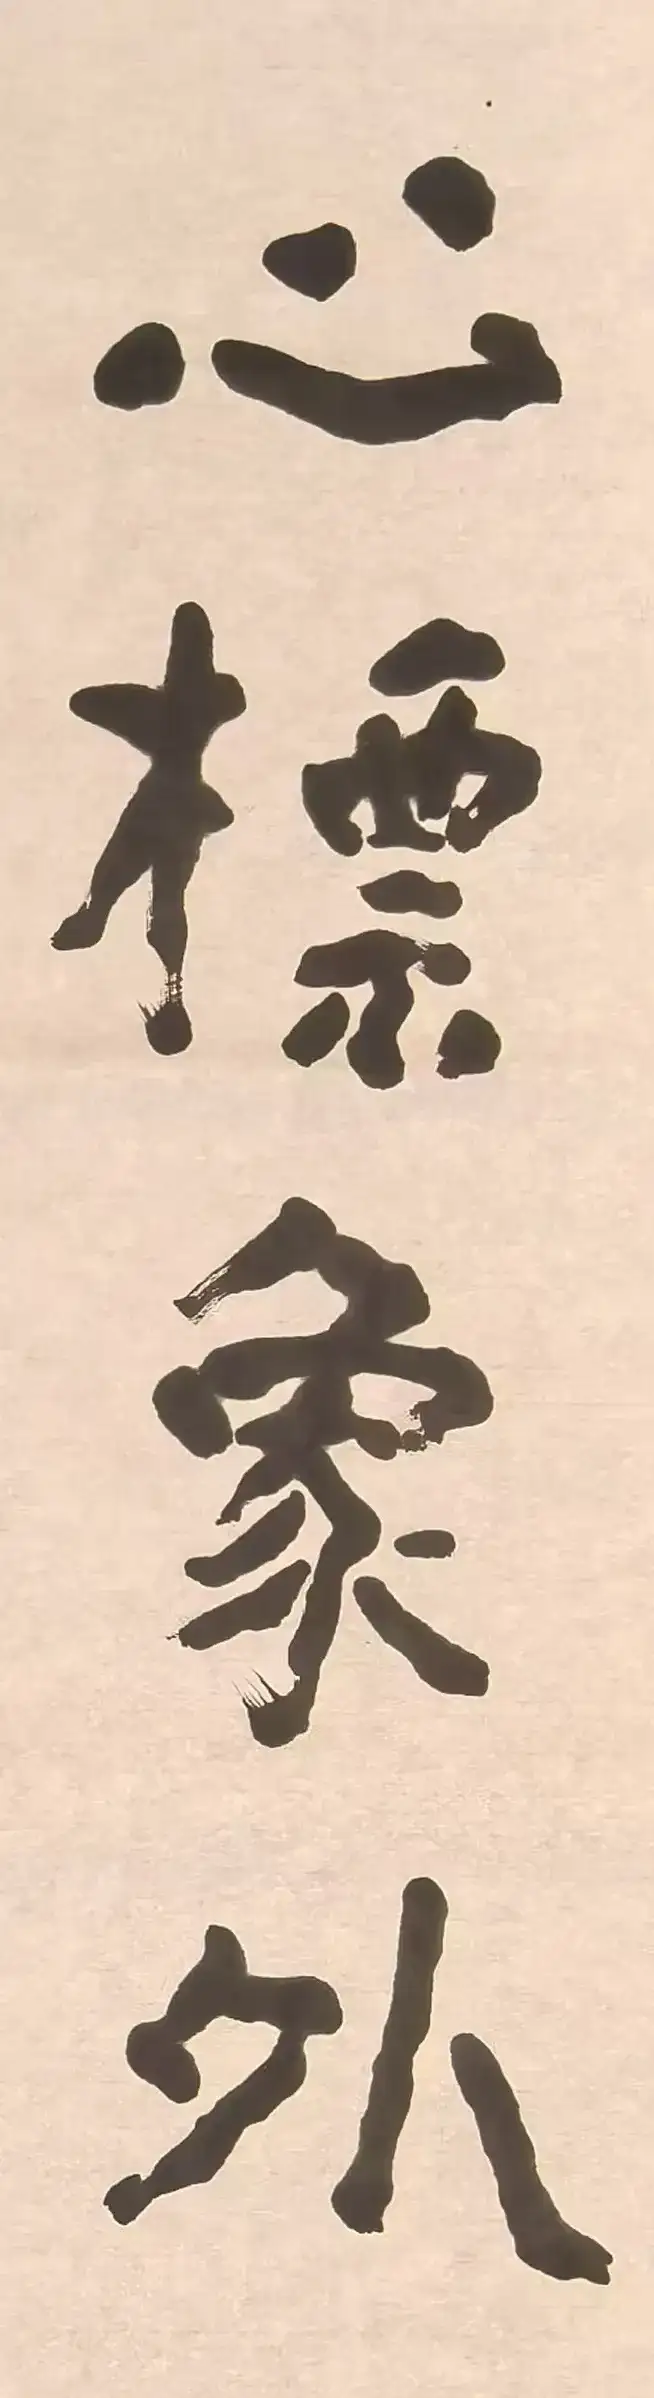 心標象外